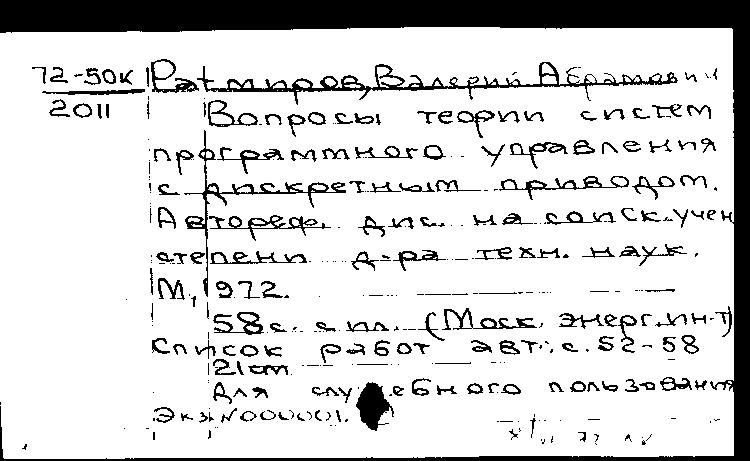 72-50к Ратмиров, Валерий Абрамович
2011 Вопросы теории систем
программного управления
с дискретным приводом.
Автореф. дис. на соиск. учен
степени д-ра техн. наук.
М, 1972.
58с. с ил. (Моск. энерг. ин-т)
Список работ авт.: с. 52-58
21cm
Для служебного пользования
Экз N000001.